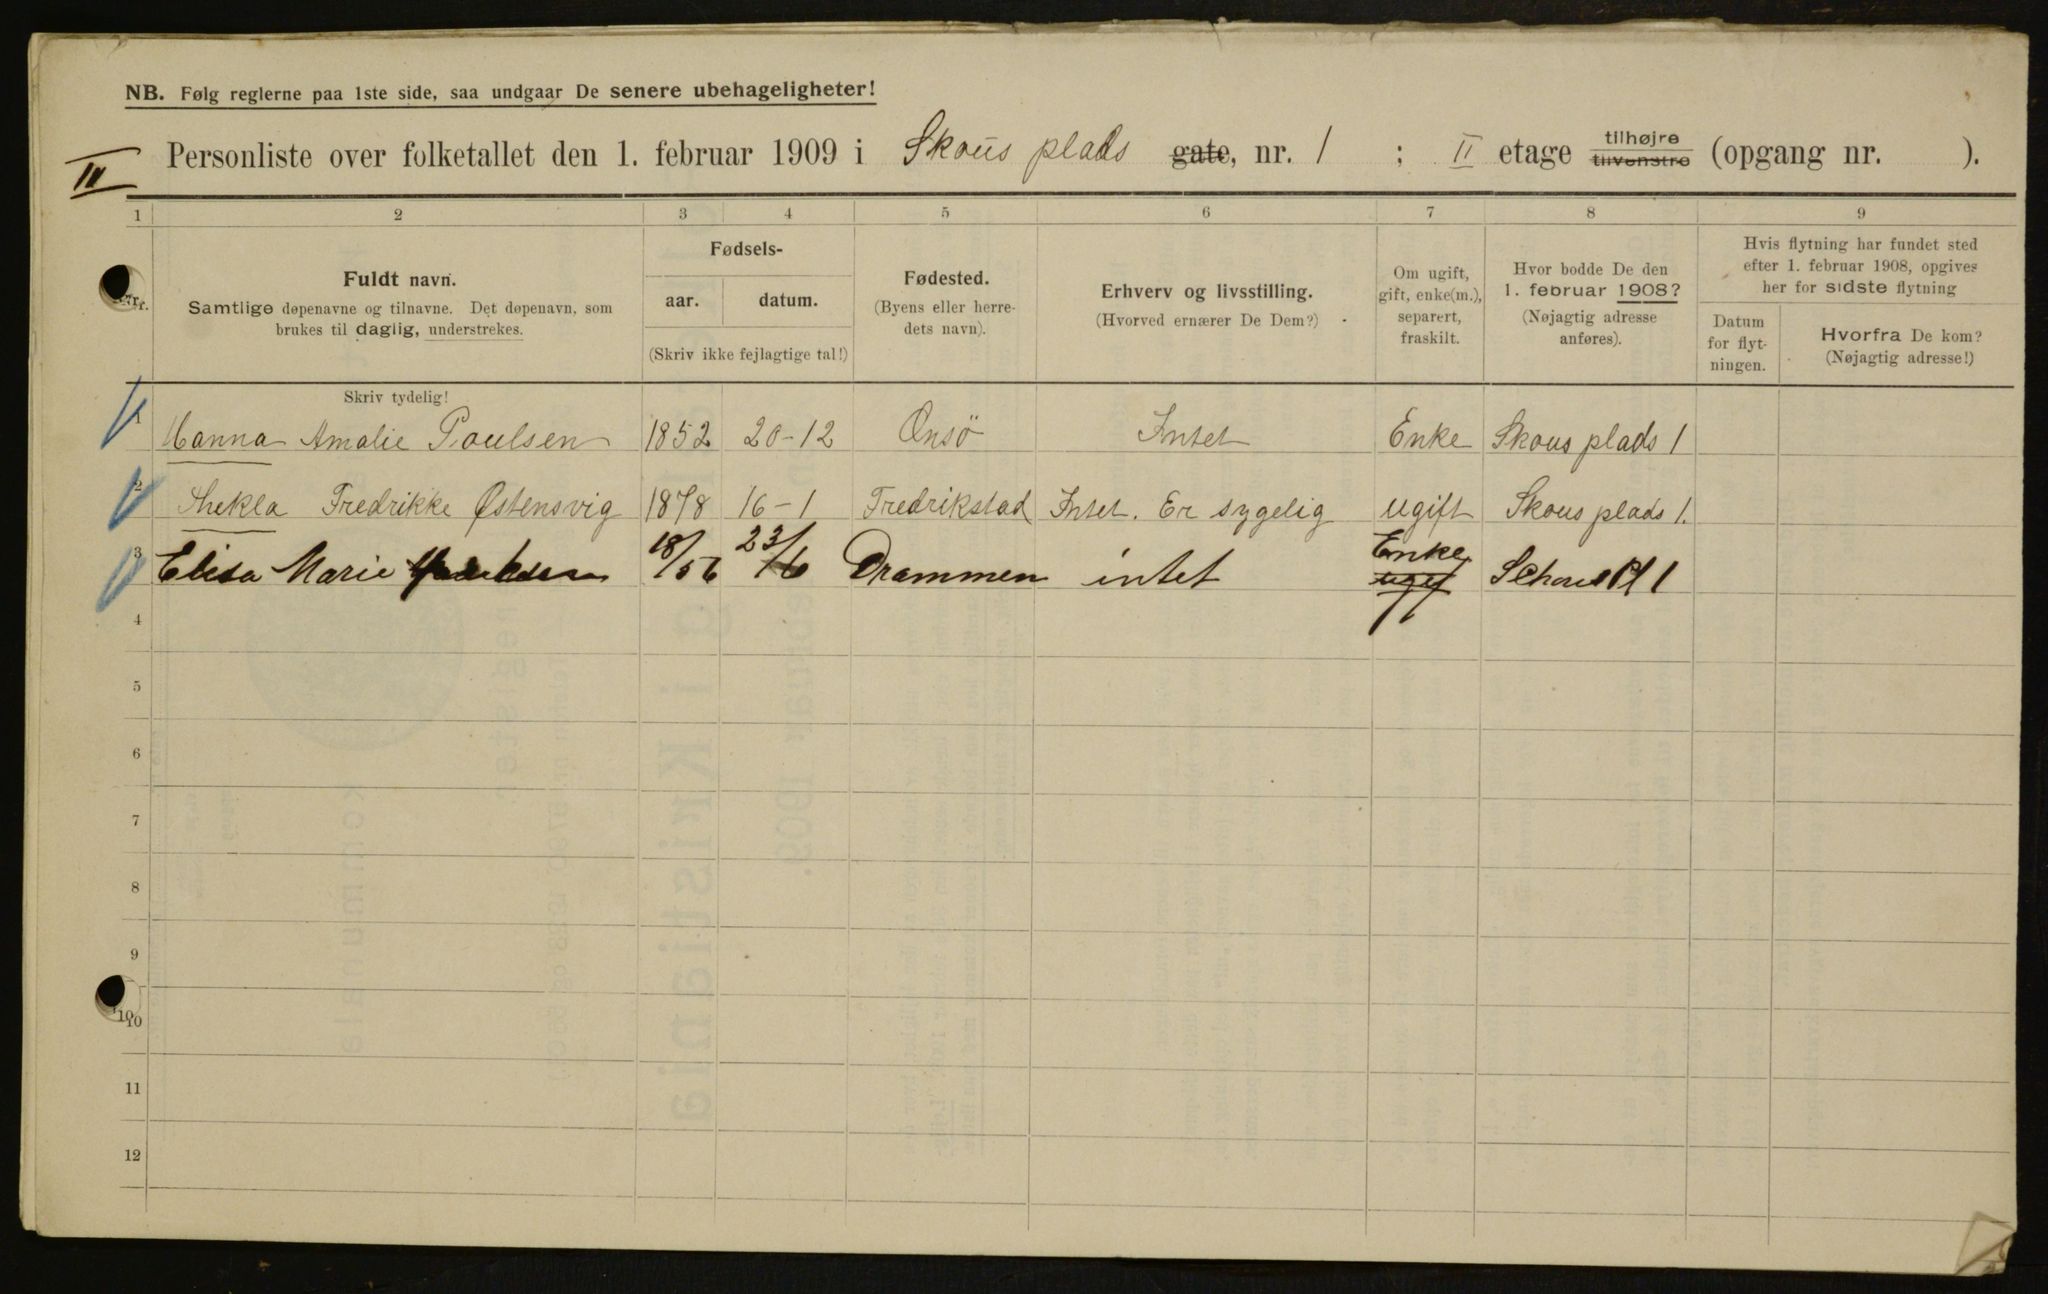 NB. Følg reglerne paa 1ste side, saa undgaar De senere ubehageligheter!
II
Personliste over folketallet den 1. februar 1909 i Skous plads gate, nr. 1 ; II etage tilhøjre tilvenstre (opgang nr. ).
1 2 3 4 5 6 7 8 9
Nr.
Fuldt navn.
Samtlige døpenavne og tilnavne. Det døpenavn, som
brukes til daglig, understrekes.
Fødsels-
aar. datum.
(Skriv ikke fejlagtige tal!)
Fødested.
(Byens eller herre-
dets navn).
Erhverv og livsstilling.
(Hvorved ernærer De Dem?)
Om ugift,
gift, enke(m.),
separert,
fraskilt.
Hvor bodde De den
1. februar 1908?
(Nøjagtig adresse
anføres).
Hvis flytning har fundet sted
efter 1. februar 1908, opgives
her for sidste flytning
Datum
for flyt-
ningen.
Hvorfra De kom?
(Nøjagtig adresse!)
Skriv tydelig!
1 Hanna Amalie Poulsen 1852 20-12 Onsö Intet Enke Skous plads 1
2 Thekla Fredrikke Østensvig 1878 16-1 Fredrikstad Intet. Er sygelig ugift Skous plads 1.
3 Elisa Marie 18/56 23/6 Drammen intet Enke ugif Schous Pl 1
4
5
6
7
8
9
10 10
11
12